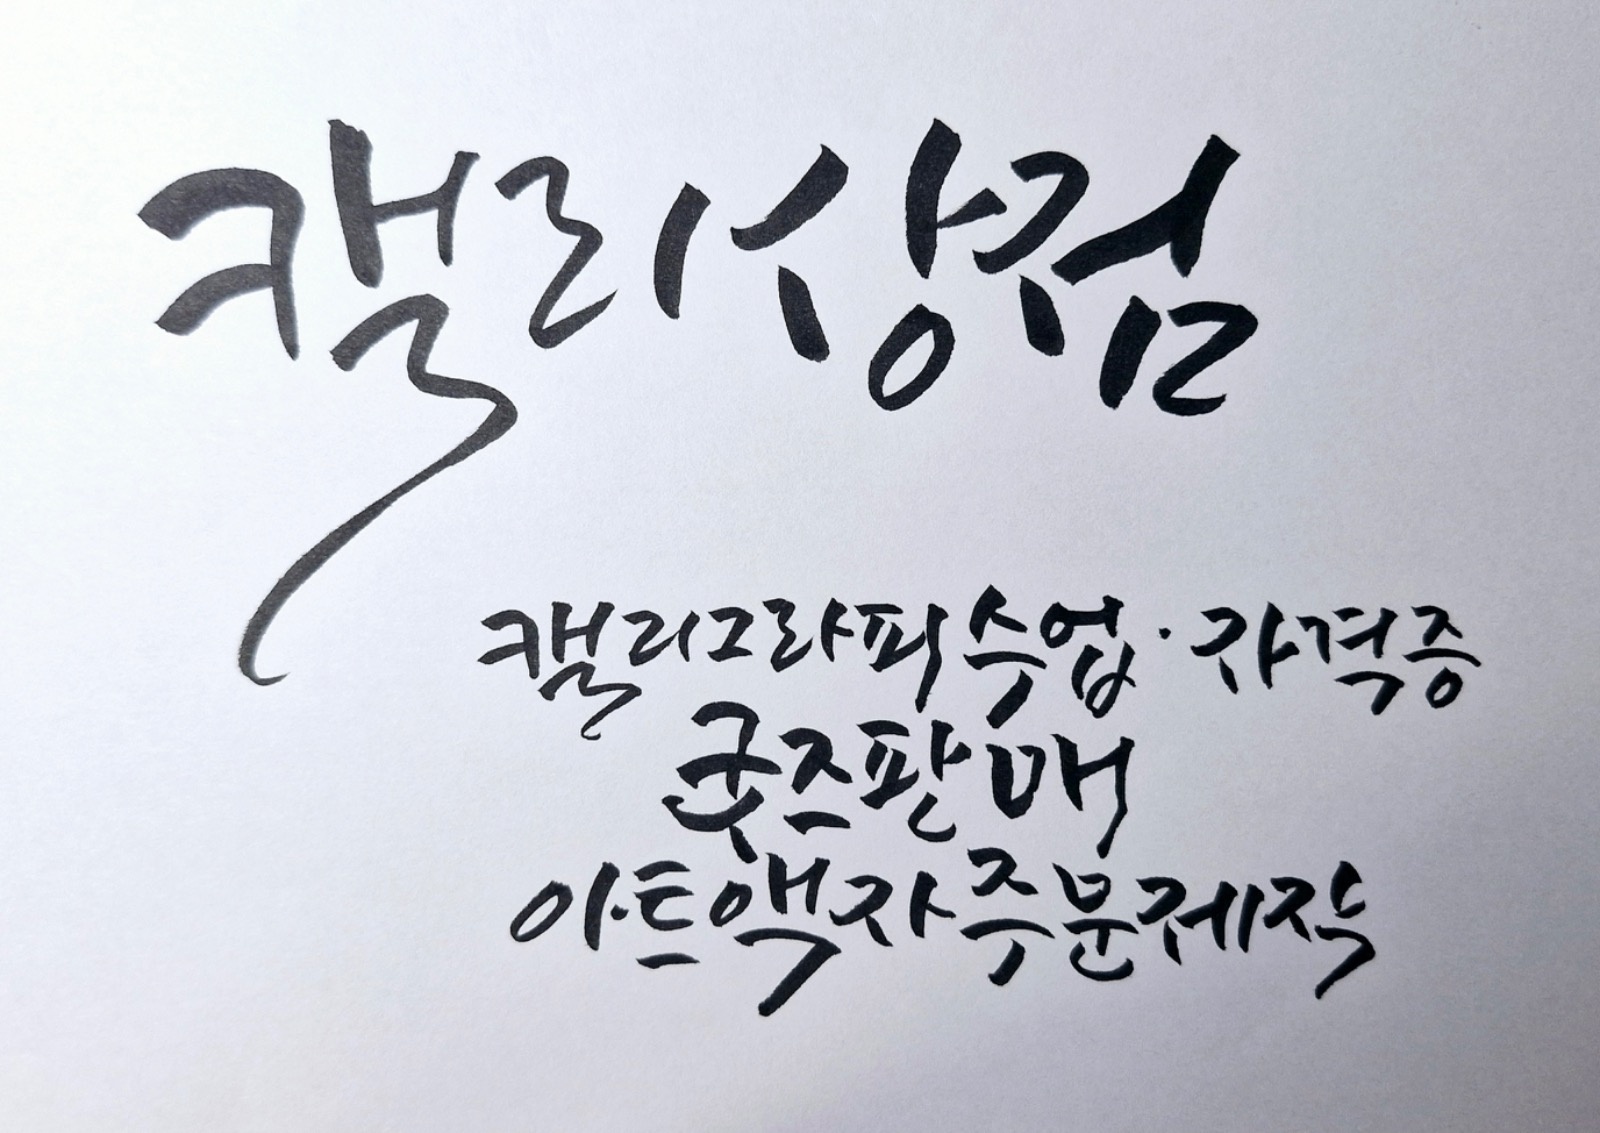 캘리상점
캘리그라피수업·자격증
굿즈판매
아트액자주문제작